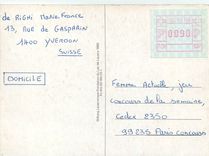 de RIGHI MARIE.FRANCE
13, Rue de GASPARIN
1400 YVERDON
SUISSE
DOMICILE
0090
Femme Actuelle, jeu
concours de la semaine,
Cedex 2350
99235 Paris concours